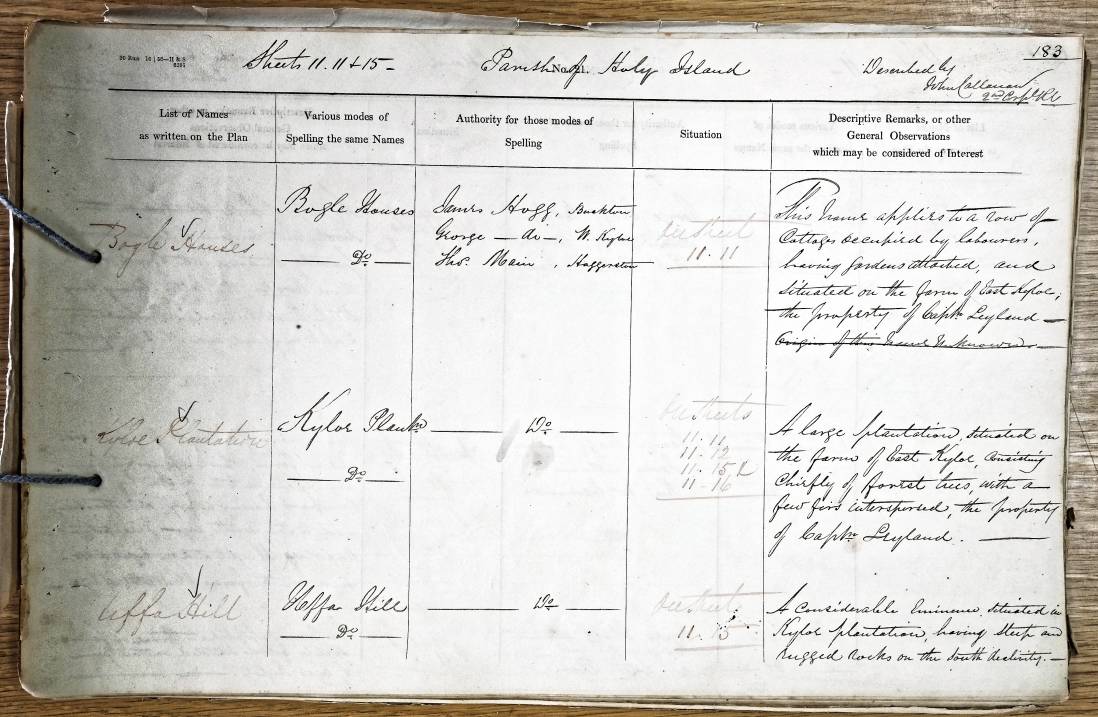 183
Sheets 11.11 & 15 -
Parish of Holy Island
No. 1.
Described by
John Callanan
2nd Corpl RE
List of Names
as written on the Plan
Various modes of
Spelling the same Names
Authority for those modes of
Spelling
Situation
Descriptive Remarks, or other
General Observations
which may be considered of Interest
Bogle Houses
Bogle Houses
Do
James Hogg, Buckton
George - do -, W. Kyloe
Thos. Main, Haggerston
See Sheet
11.11
This Name applies to a row of
Cottages occupied by labourers,
having gardens attached, and
situated on the farm of East Kyloe;
the property of Captn Leyland
Origin of this Name Unknown
Kyloe Plantation
Kyloe Plantn
Do
Do
See Sheets
11.11
11.12
11.15 &
11.16
A large plantation, situated on
the farm of East Kyloe, Consisting
Chiefly of forest trees, with a
few firs interspersed, the property
of Captn Leyland.
Uffa Hill
Heffa Hill
Do
Do
See Sheet
11.15
A Considerable Eminence situated in
Kyloe plantation, having steep and
rugged rocks on the South declivity.